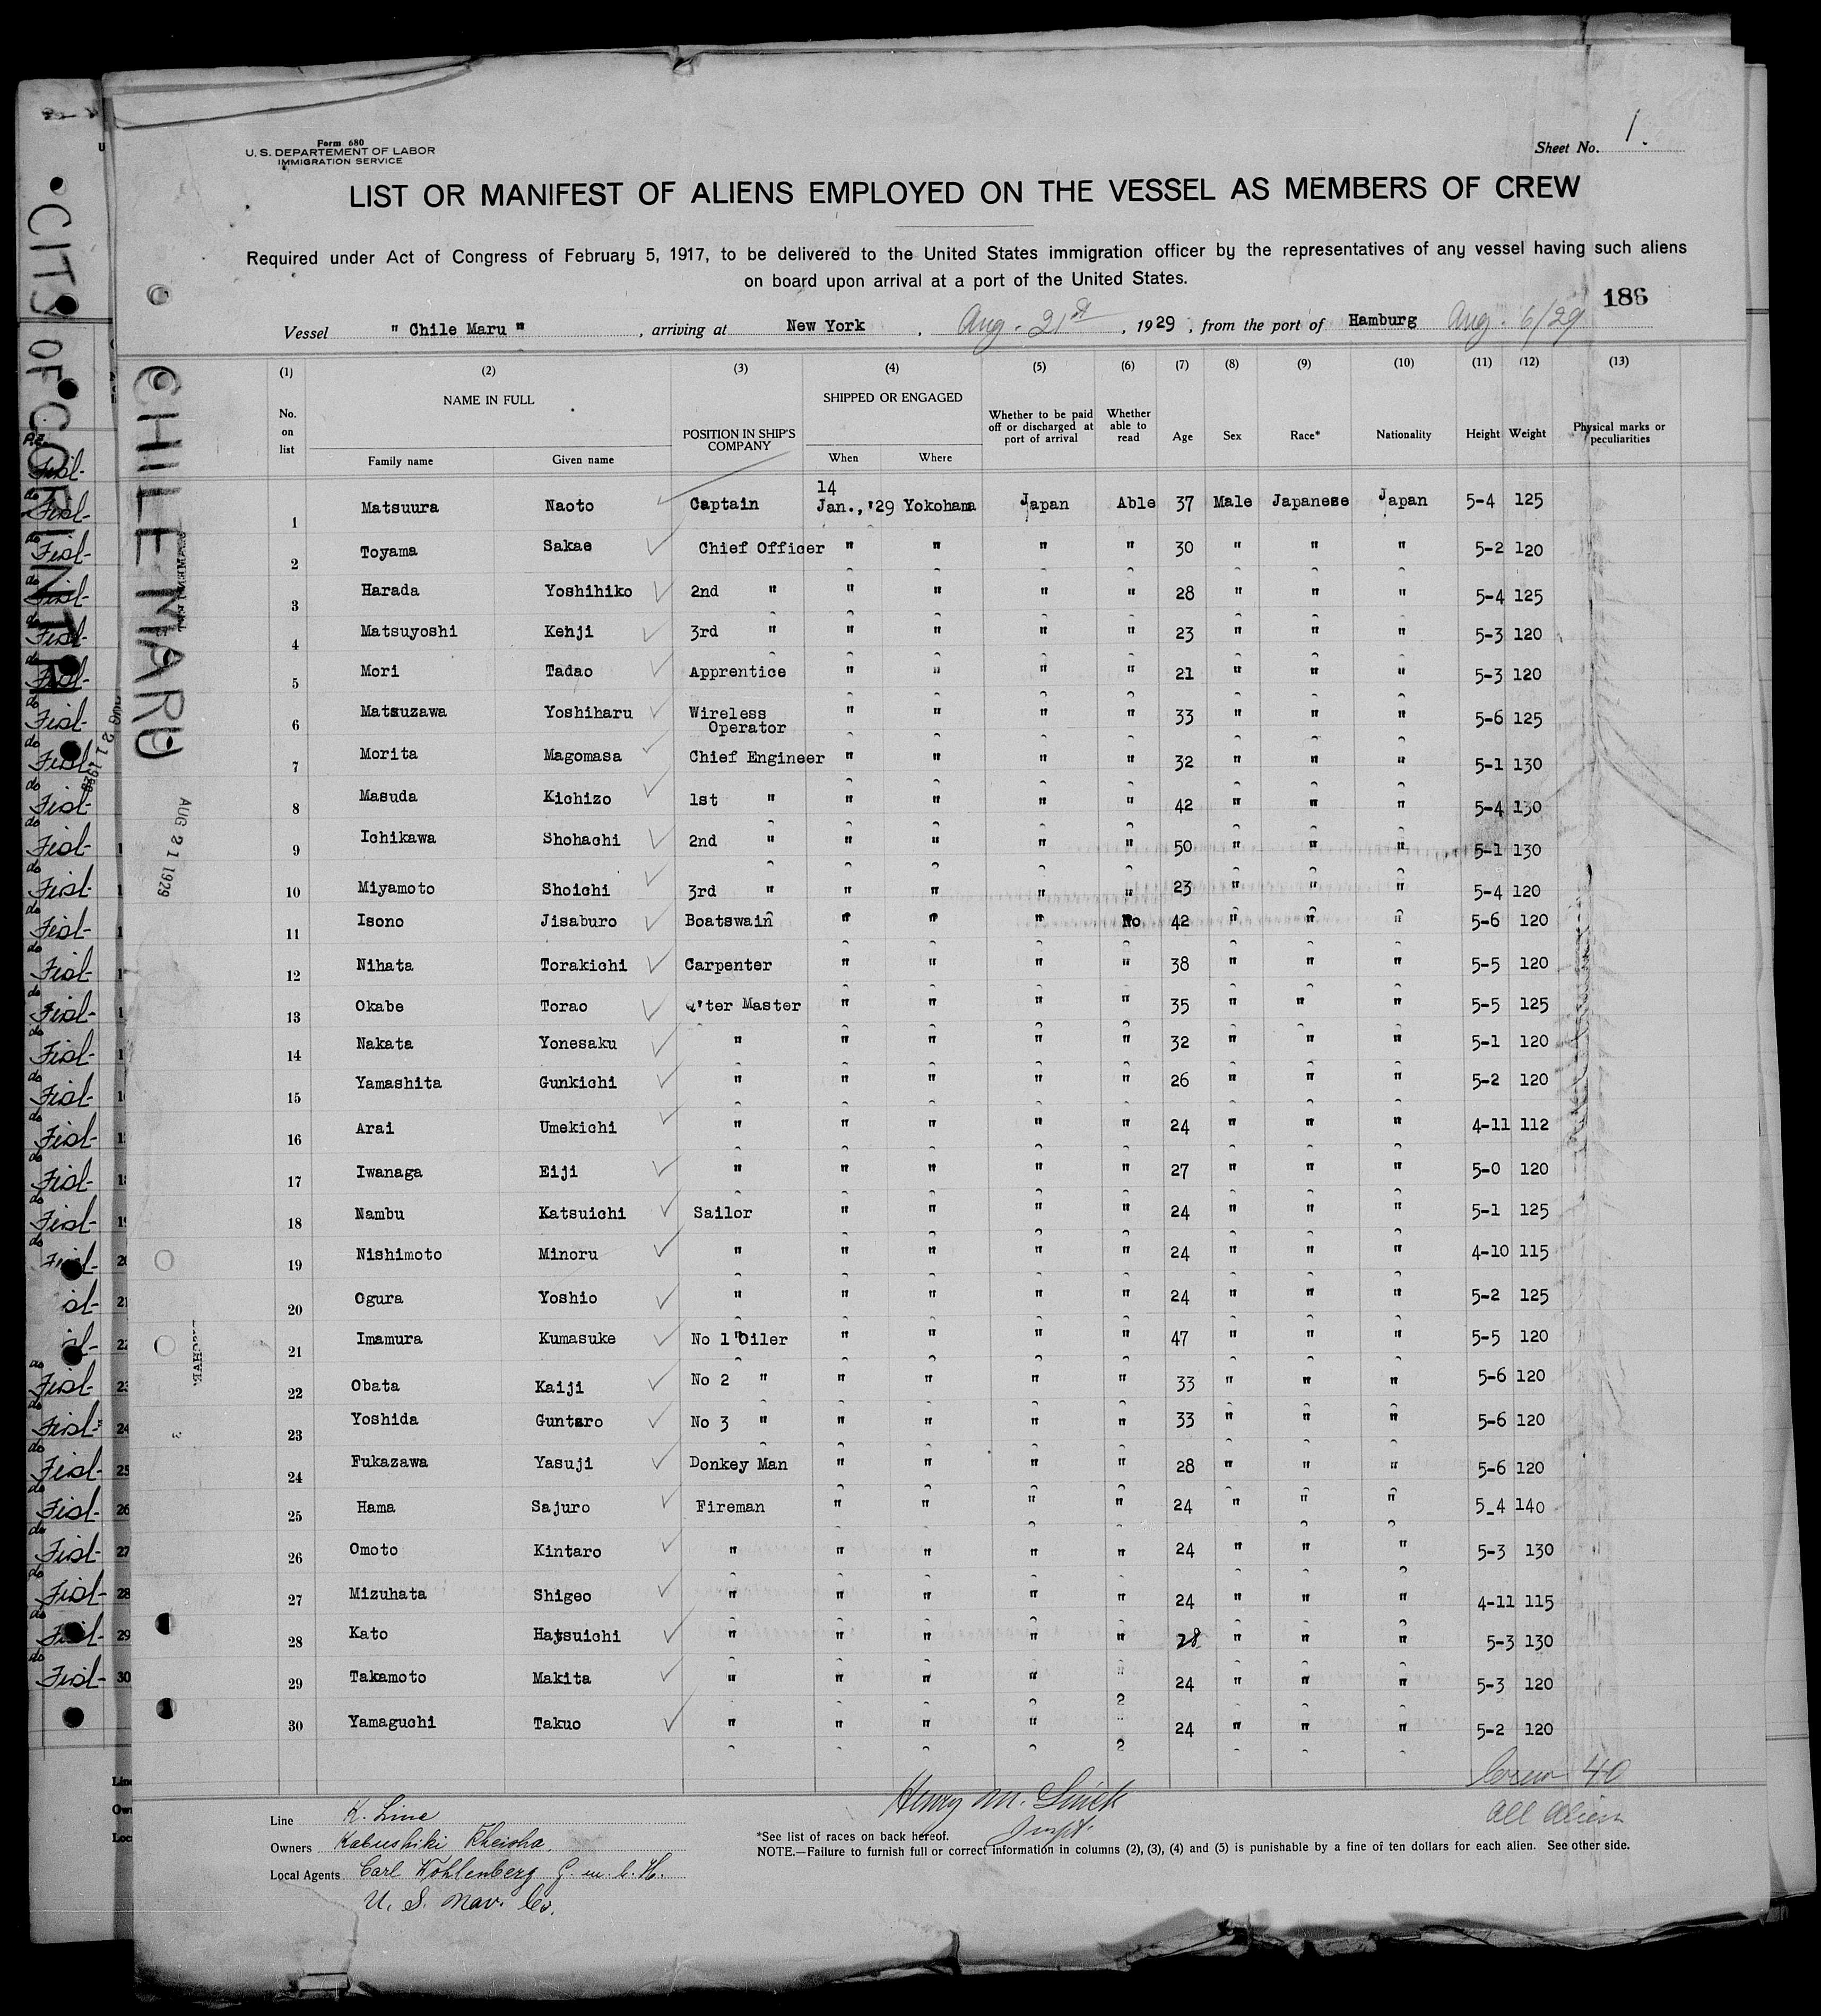 Form 680
U. S. DEPARTEMENT OF LABOR
IMMIGRATION SERVICE
Sheet No. 1.
LIST OR MANIFEST OF ALIENS EMPLOYED ON THE VESSEL AS MEMBERS OF CREW
Required under Act of Congress of February 5, 1917, to be delivered to the United States immigration officer by the representatives of any vessel having such aliens
on board upon arrival at a port of the United States.
186
Vessel " Chile Maru " , arriving at New York , Aug. 21st , 1929 , from the port of Hamburg Aug. 6/29
(1) (2) (3) (4) (5) (6) (7) (8) (9) (10) (11) (12) (13)
No. on list NAME IN FULL Family name Given name POSITION IN SHIP'S COMPANY SHIPPED OR ENGAGED When Where Whether to be paid off or discharged at port of arrival Whether able to read Age Sex Race* Nationality Height Weight Physical marks or peculiarities
1 Matsuura Naoto Captain 14 Jan., '29 Yokohama Japan Able 37 Male Japanese Japan 5-4 125
2 Toyama Sakae Chief Officer " " " " 30 " " " 5-2 120
3 Harada Yoshihiko 2nd " " " " " 28 " " " 5-4 125
4 Matsuyoshi Kenji 3rd " " " " " 23 " " " 5-3 120
5 Mori Tadao Apprentice " " " " 21 " " " 5-3 120
6 Matsuzawa Yoshiharu Wireless Operator " " " " 33 " " " 5-6 125
7 Morita Magomasa Chief Engineer " " " " 32 " " " 5-1 130
8 Masuda Kichizo 1st " " " " " 42 " " " 5-4 130
9 Ichikawa Shohachi 2nd " " " " " 50 " " " 5-1 130
10 Miyamoto Shoichi 3rd " " " " " 23 " " " 5-4 120
11 Isono Jisaburo Boatswain " " " No 42 " " " 5-6 120
12 Nihata Torakichi Carpenter " " " " 38 " " " 5-5 120
13 Okabe Torao Q'ter Master " " " " 35 " " " 5-5 125
14 Nakata Yonesaku " " " " " 32 " " " 5-1 120
15 Yamashita Gunkichi " " " " " 26 " " " 5-2 120
16 Arai Umekichi " " " " " 24 " " " 4-11 112
17 Iwanaga Eiji " " " " " 27 " " " 5-0 120
18 Nambu Katsuichi Sailor " " " " 24 " " " 5-1 125
19 Nishimoto Minoru " " " " " 24 " " " 4-10 115
20 Ogura Yoshio " " " " " 24 " " " 5-2 125
21 Imamura Kumasuke No 1 Oiler " " " " 47 " " " 5-5 120
22 Obata Kaiji No 2 " " " " " 33 " " " 5-6 120
23 Yoshida Guntaro No 3 " " " " " 33 " " " 5-6 120
24 Fukazawa Yasuji Donkey Man " " " " 28 " " " 5-6 120
25 Hama Sajuro Fireman " " " " 24 " " " 5_4 140
26 Omoto Kintaro " " " " " 24 " " " 5-3 130
27 Mizuhata Shigeo " " " " " 24 " " " 4-11 115
28 Kato Hatsuichi " " " " " 28 " " " 5-3 130
29 Takamoto Makita " " " " " 24 " " " 5-3 120
30 Yamaguchi Takuo " " " " " 24 " " " 5-2 120
Crew 40
All Alien
Line K. Line
Owners Kabushiki Kheisha.
Local Agents Carl Wohlenberg G. m. b. H.
U. S. Nav. Co.
Henry M.
Inspt.
*See list of races on back hereof.
NOTE.—Failure to furnish full or correct information in columns (2), (3), (4) and (5) is punishable by a fine of ten dollars for each alien. See other side.
CHILE MARU
AUG 21 1929
CITY OF CORINTH
AUG 21 1929